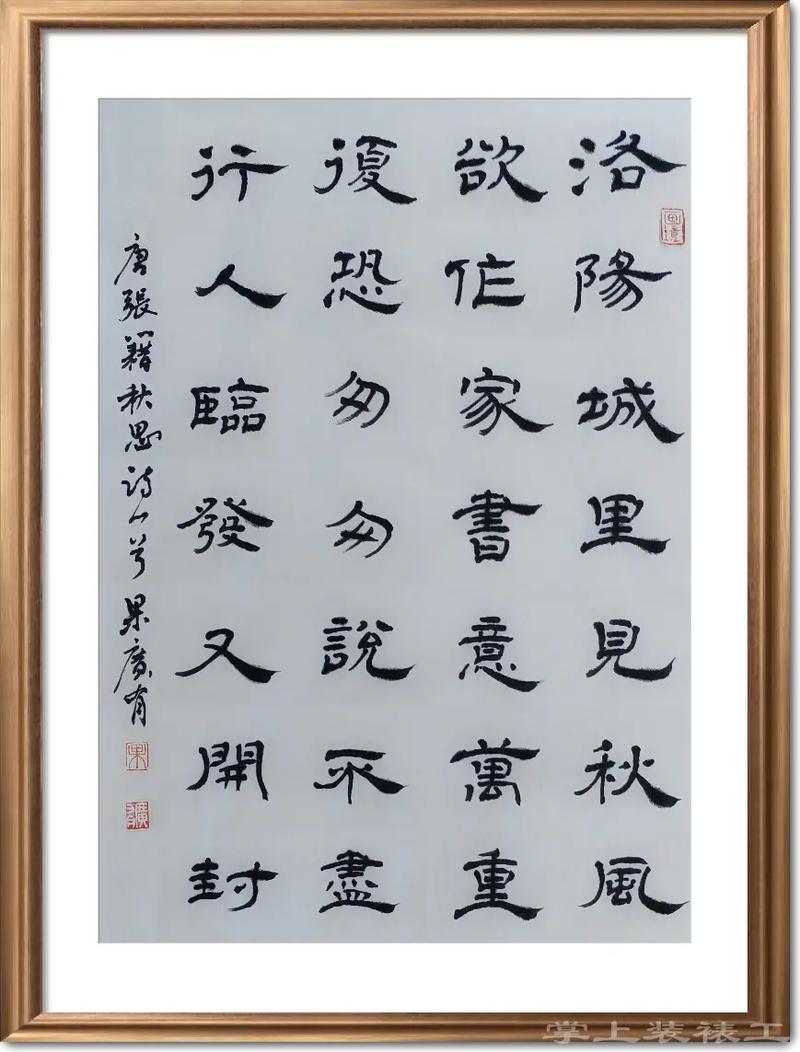 洛陽城里見秋風
欲作家書意萬重
復恐匆匆說不盡
行人臨發又開封
唐張籍秋思詩一首 果廣有
掌上装裱工